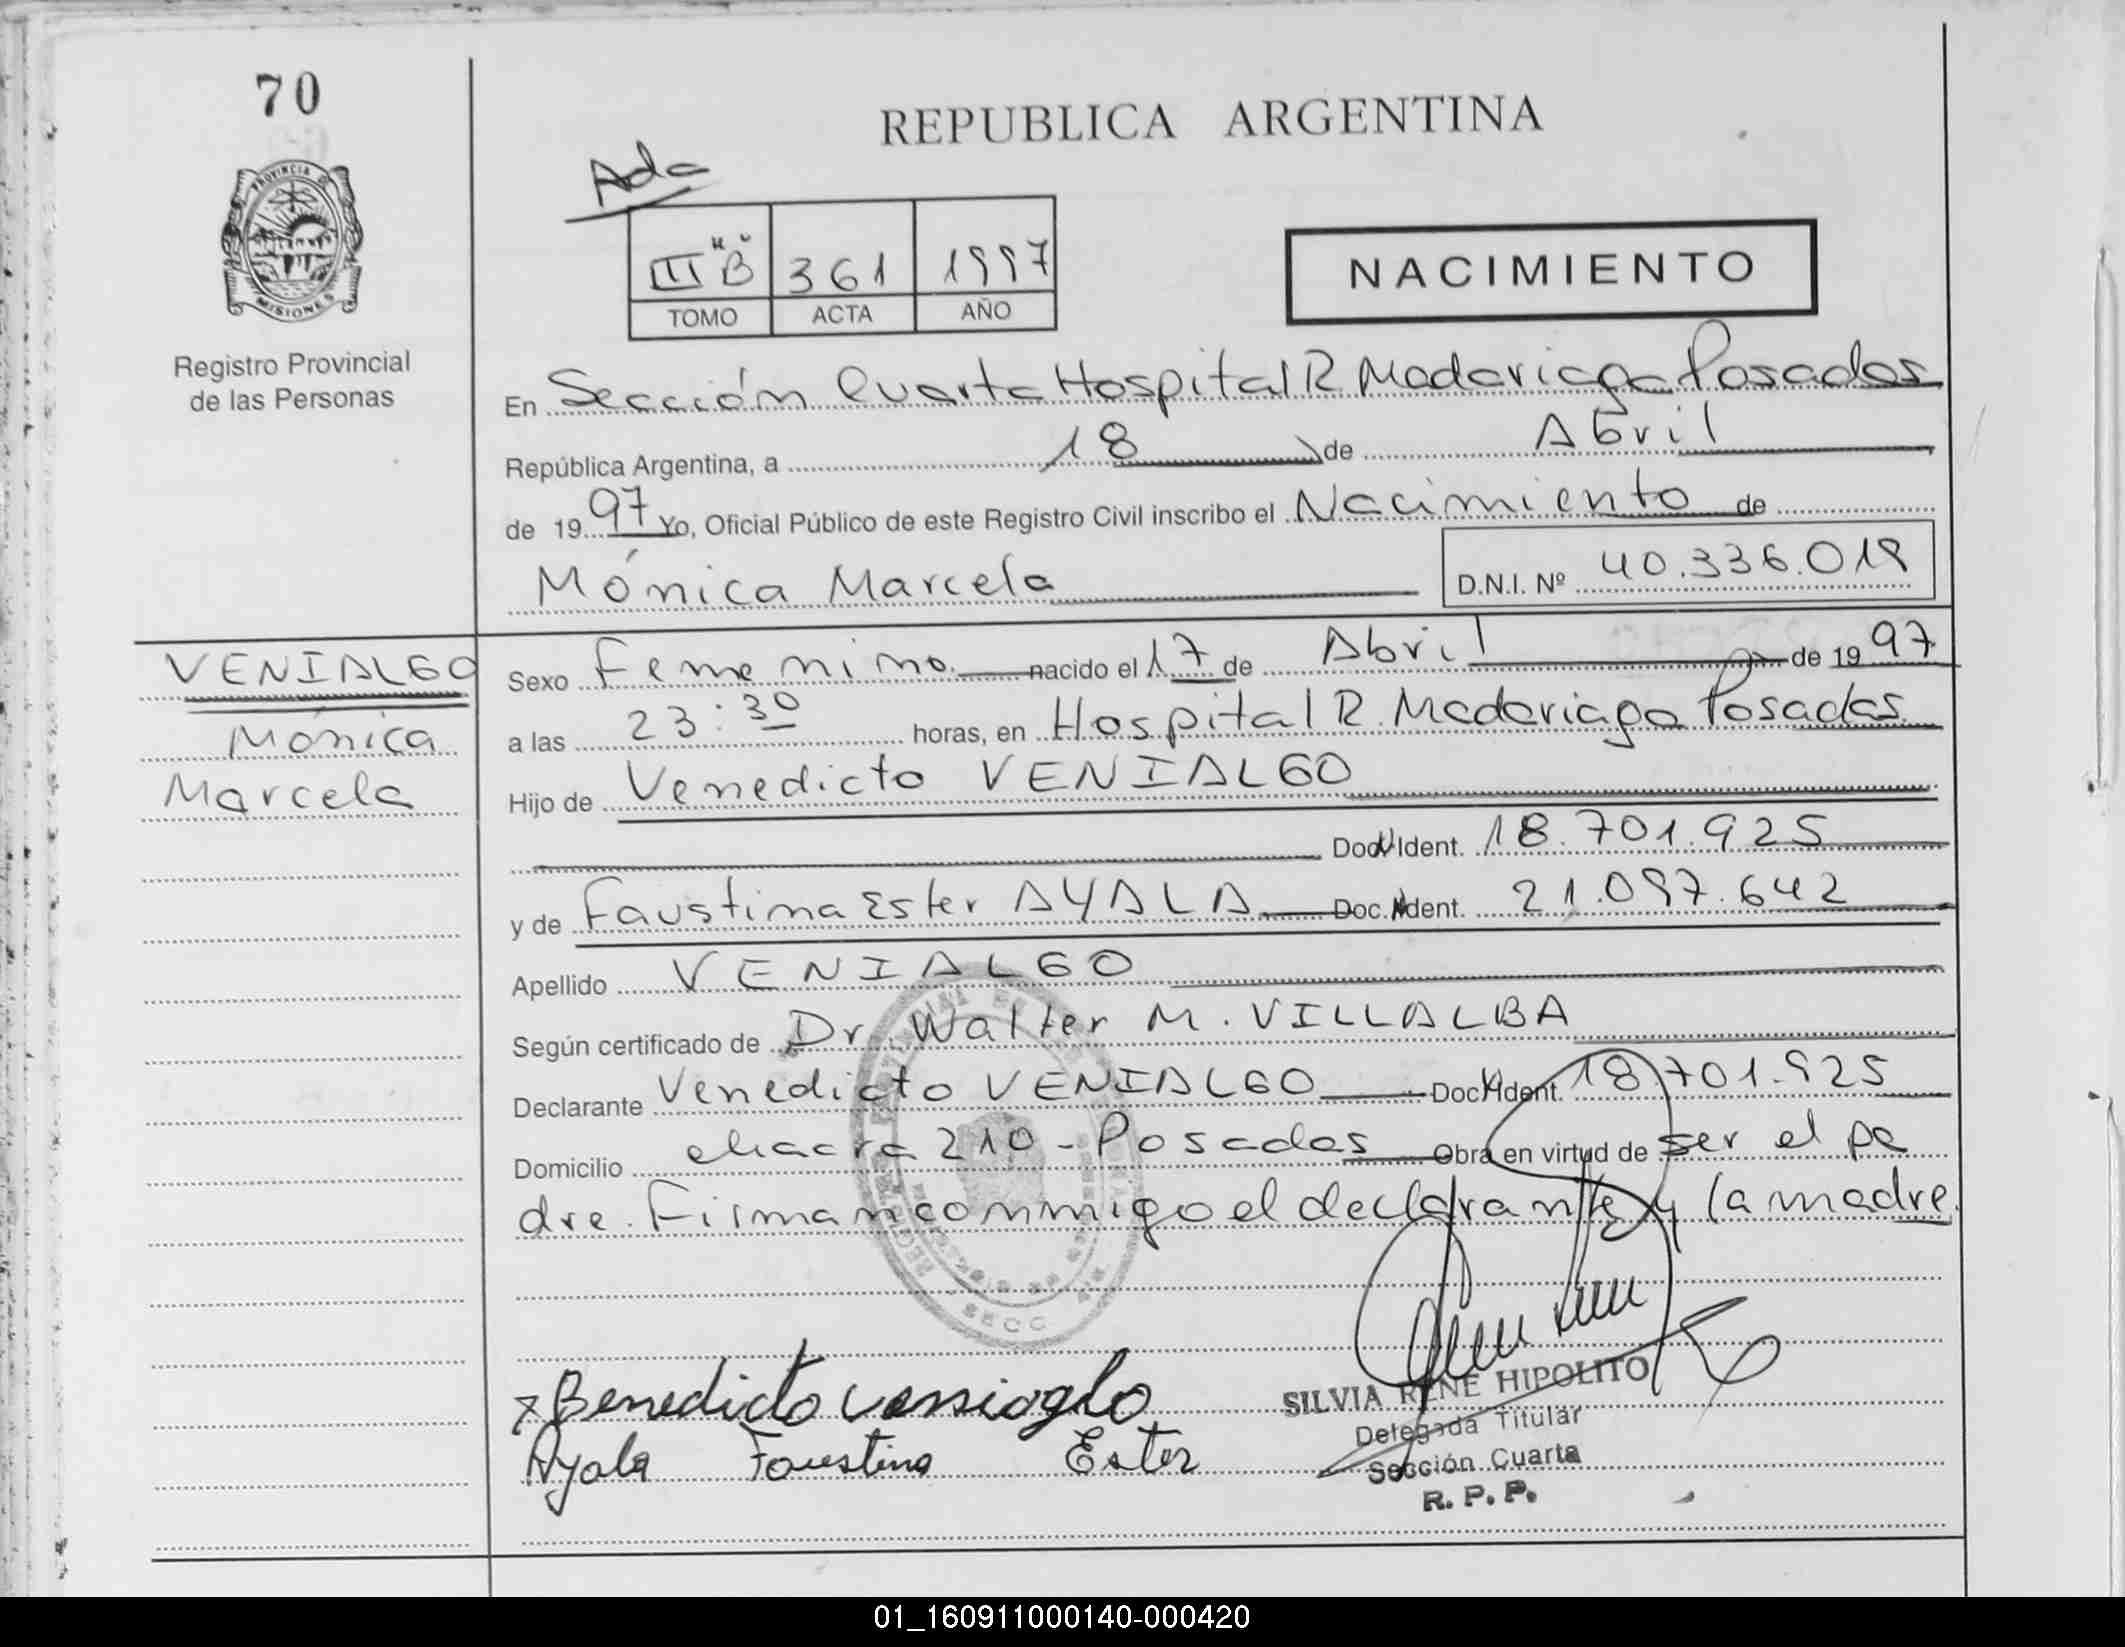 70
PROVINCIA DE
MISIONES
Registro Provincial
de las Personas
REPUBLICA ARGENTINA
Ada
III "B" 361 1997
TOMO ACTA AÑO
NACIMIENTO
En Sección Cuarta Hospital R Madariaga Posadas
República Argentina, a 18 de Abril
de 1997 Yo, Oficial Público de este Registro Civil inscribo el Nacimiento de
Mónica Marcela D.N.I. Nº 40.336.019
VENIALGO
Mónica
Marcela
Sexo Femenino nacido el 17 de Abril de 1997
a las 23:30 horas, en Hospital R. Madariaga Posadas
Hijo de Venedicto VENIALGO
Doc. Ident. 18.701.925
y de Faustina Ester AYALA Doc. Ident. 21.097.642
Apellido VENIALGO
Según certificado de Dr. Walter M. VILLALBA
Declarante Venedicto VENIALGO Doc. Ident. 18.701.925
Domicilio chacra 210 - Posadas Obra en virtud de ser el pa
dre. Firman conmigo el declarante y la madre.
SECC
x Benedicto
Ayala Faustina Ester
SILVIA RENE HIPOLITO
Delegada Titular
Sección Cuarta
R. P. P.
01_160911000140-000420